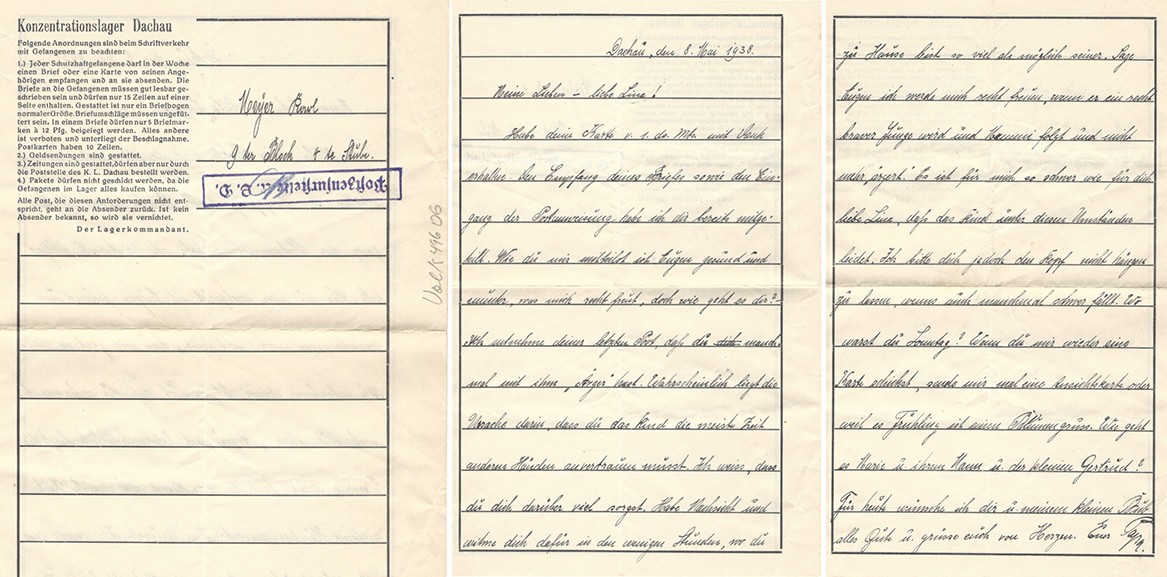 Konzentrationslager Dachau
Folgende Anordnungen sind beim Schriftverkehr
mit Gefangenen zu beachten:
1.) Jeder Schutzhaftgefangene darf in der Woche
einen Brief oder eine Karte von seinen Ange-
hörigen empfangen und an sie absenden. Die
Briefe an die Gefangenen müssen gut lesbar ge-
schrieben sein und dürfen nur 15 Zeilen auf einer
Seite enthalten. Gestattet ist nur ein Briefbogen
normaler Größe. Briefumschläge müssen ungefüt-
tert sein. In einem Briefe dürfen nur 5 Briefmar-
ken à 12 Pfg. beigelegt werden. Alles andere
ist verboten und unterliegt der Beschlagnahme.
Postkarten haben 10 Zeilen.
2.) Geldsendungen sind gestattet.
3.) Zeitungen sind gestattet, dürfen aber nur durch
die Poststelle des K. L. Dachau bestellt werden.
4.) Pakete dürfen nicht geschickt werden, da die
Gefangenen im Lager alles kaufen können.
Alle Post, die diesen Anforderungen nicht ent-
spricht, geht an die Absender zurück. Ist kein
Absender bekannt, so wird sie vernichtet.
Der Lagerkommandant.
Meyer Karl
9 ter Block 4 te Stube.
Postzensurstelle K. L. D.
496 06
Dachau, den 8. Mai 1938.
Meine Lieben – liebe Lina!
Habe deine Karte v. 1. ds. Mts. mit Dank
erhalten. Den Empfang deines Briefes sowie den Ein-
gang der Postanweisung habe ich dir bereits mitge-
teilt. Wie du mir mitteilst ist Eugen gesund und
munter, was mich recht freut, doch wie geht es dir? –
Ich entnehme deiner letzten Post, daß du manch
mal mit ihm „Ärger" hast. Wahrscheinlich liegt die
Ursache darin, dass du das Kind die meiste Zeit
anderen Händen anvertrauen musst. Ich weiss, dass
du dich darüber viel sorgst. Habe Nachsicht und
widme dich dafür in den wenigen Stunden, wo du
zu Hause bist so viel als möglich seiner. Sage
Eugen ich werde mich recht freuen, wenn er ein recht
braver Junge wird und Mammi folgt und nicht
mehr ärgert. Es ist für mich so schwer wie für dich
liebe Lina, daß das Kind unter diesen Umständen
leidet. Ich bitte dich jedoch den Kopf nicht hängen
zu lassen, wenns auch manchmal schwer fällt. Wo
warst du Sonntag? Wenn du mir wieder eine
Karte schickst, sende mir mal eine Ansichtskarte oder
weil es Frühling ist einen Blumengruss. Wie geht
es Marie u. ihrem Mann u. der kleinen Gertrud?
Für heute wünsche ich dir u. meinem kleinen
alles Gute u. grüsse euch von Herzen. Euer